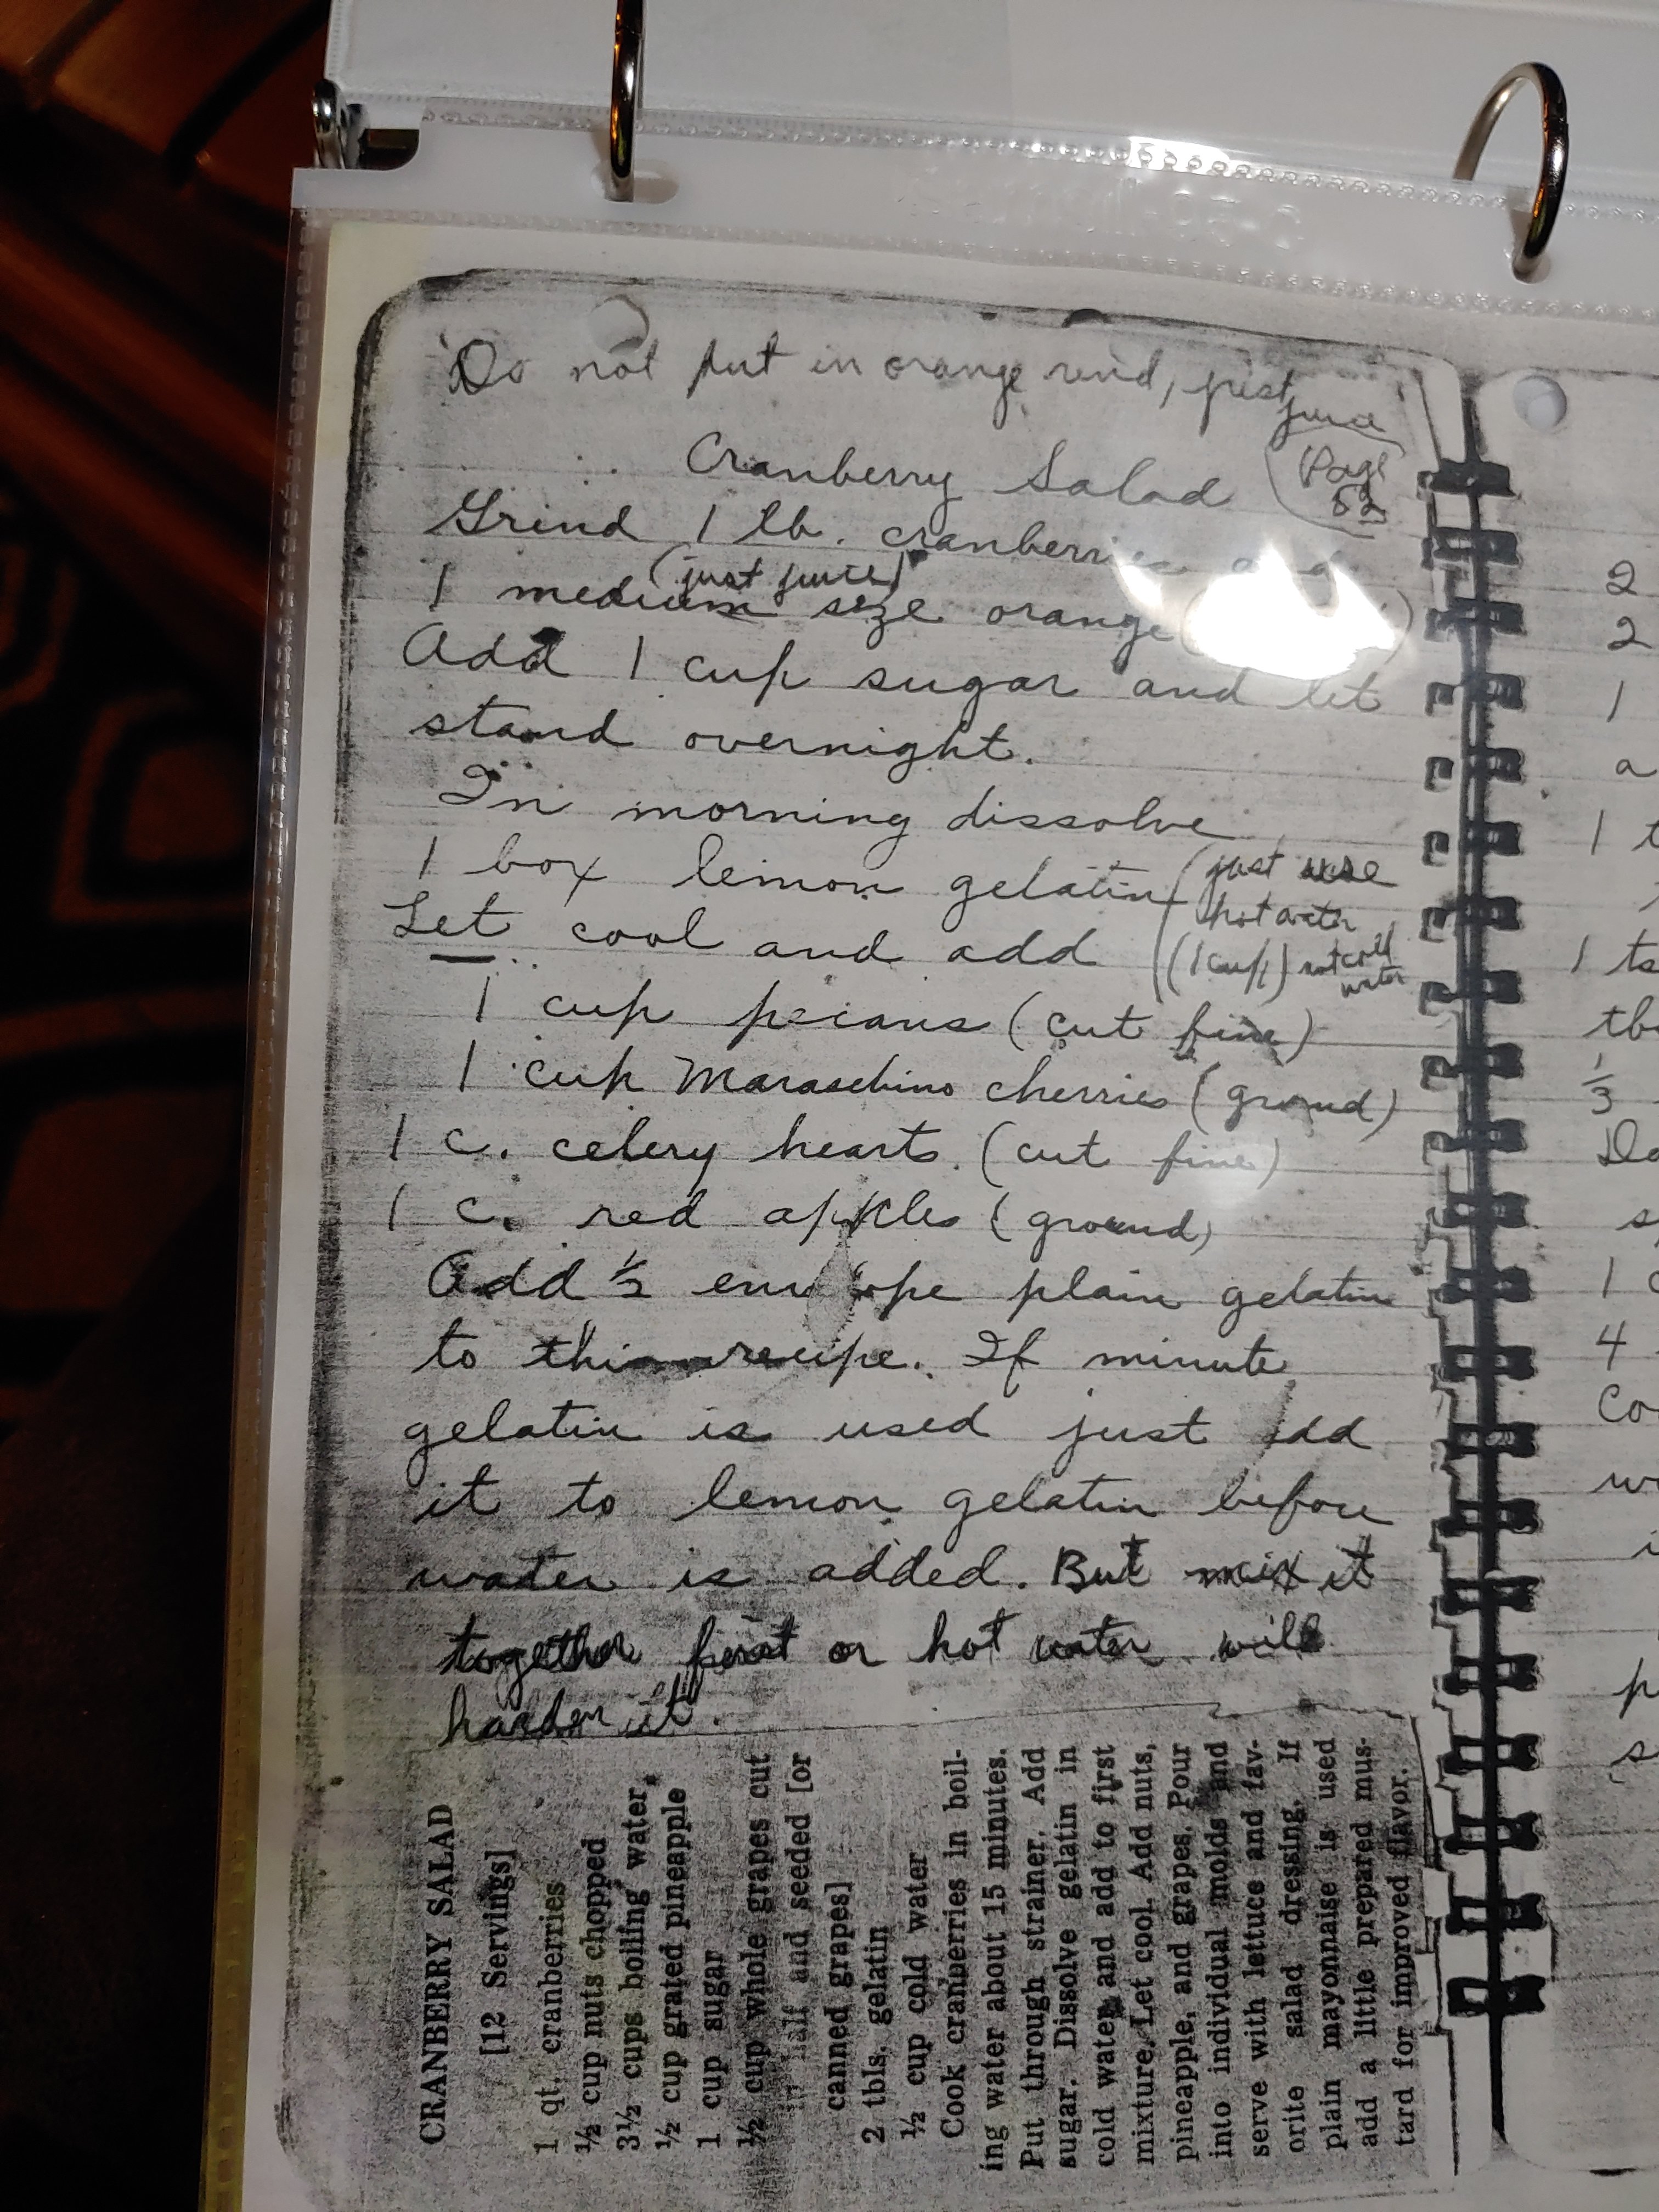 Do not put in orange rind, just
juice
Cranberry Salad
(Page
52)
Grind 1 lb. cranberries
(just juice)
1 medium size orange
Add 1 cup sugar and let
stand overnight.
In morning dissolve
1 box lemon gelatin
(just use
hot water
(1 cup) not cold
water
Let cool and add
1 cup pecans (cut fine)
1 cup Maraschino cherries (ground)
1 c. celery hearts (cut fine)
1 c. red apples (ground)
Add 1/2 envelope plain gelatin
to this recipe. If minute
gelatin is used just add
it to lemon gelatin before
water is added. But mix it
together first or hot water will
harden it.
CRANBERRY SALAD
[12 Servings]
1 qt. cranberries
½ cup nuts chopped
3½ cups boiling water
½ cup grated pineapple
1 cup sugar
½ cup whole grapes cut
in half and seeded [or
canned grapes]
2 tbls. gelatin
½ cup cold water
Cook cranberries in boil-
ing water about 15 minutes.
Put through strainer. Add
sugar. Dissolve gelatin in
cold water and add to first
mixture. Let cool. Add nuts,
pineapple, and grapes. Pour
into individual molds and
serve with lettuce and fav-
orite salad dressing. If
plain mayonnaise is used
add a little prepared mus-
tard for improved flavor.
2
2
1
a
1 t
1 ts
1/3
Do
1 c
4
Co